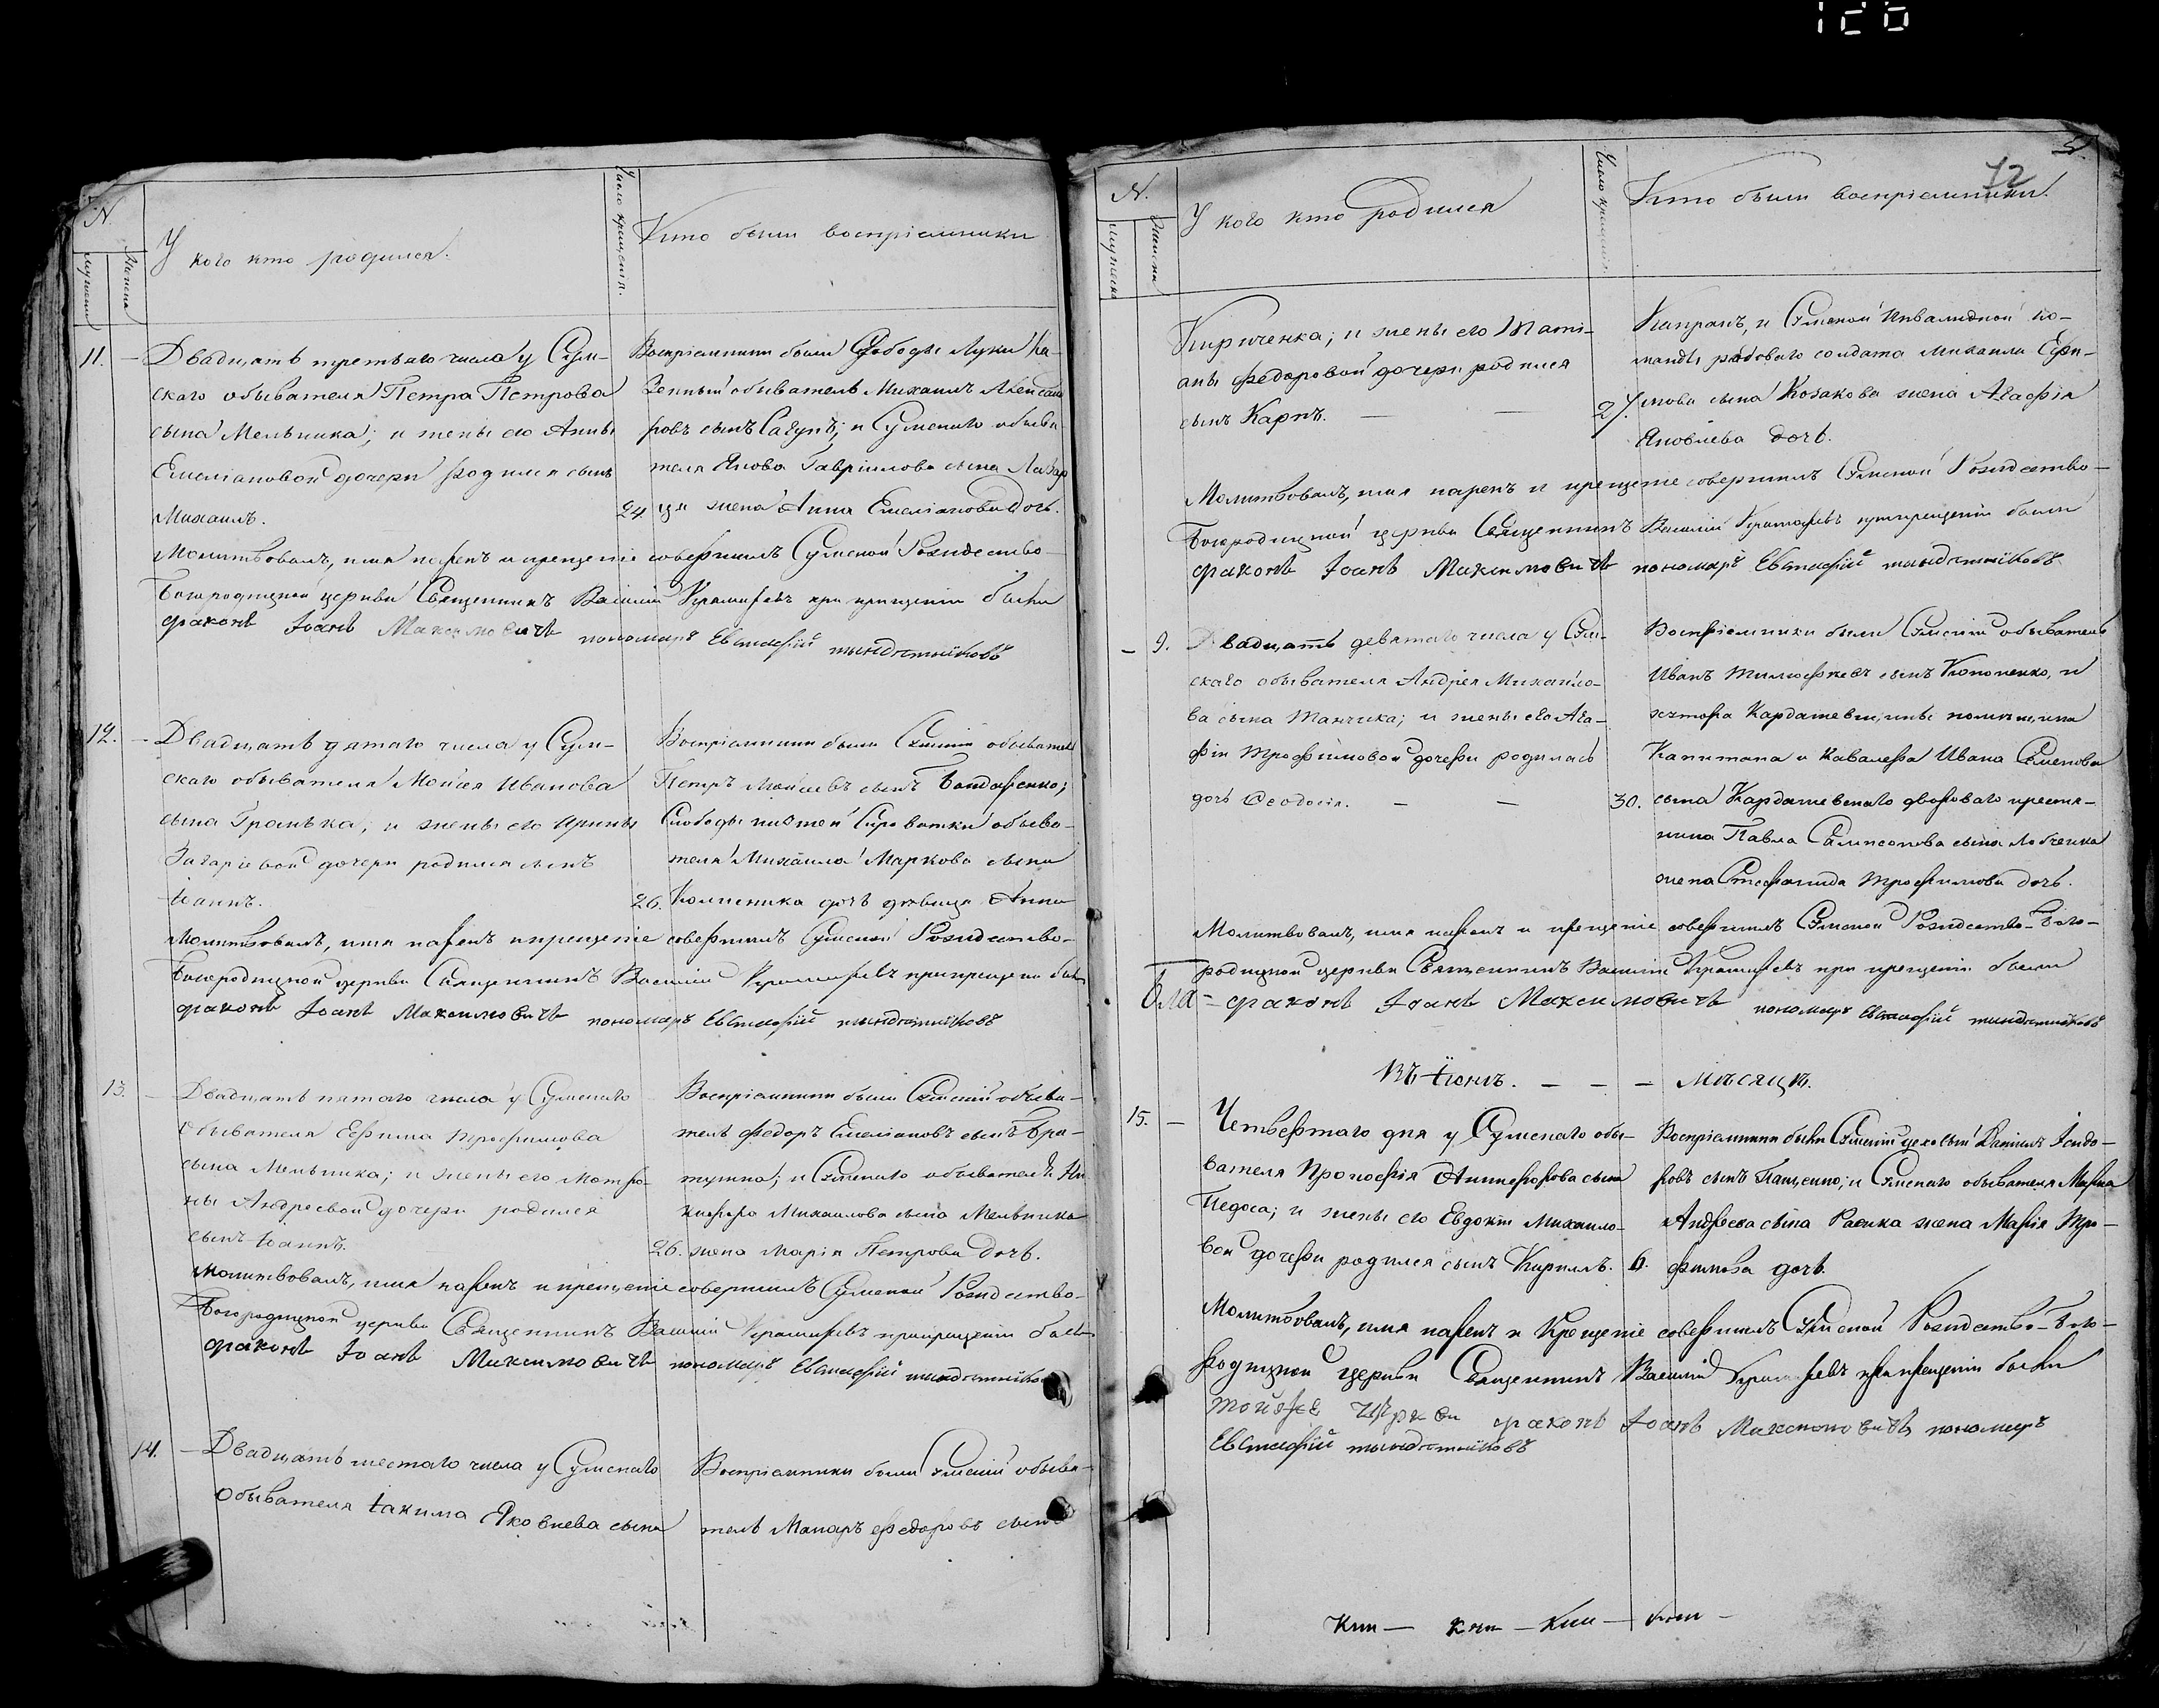 126
N.
Мужеска
Женска
У кого кто родился.
Число крещения.
Кто были воспріемники
11. — Двадцать третьяго числа у Сум-
скаго обывателя Петра Петрова
сына Мельника; и жены его Анны
Емеліановой дочери родился сынъ
Михаилъ. 24
Воспріемники были Слободы Луки Ка-
зенный обыватель Михаилъ Алексан
ровъ сынъ Сагунъ; и Сумскаго обыва-
теля Якова Гавріилова сына
жена Анна Емеліанова дочь.
Молитвовалъ, имя нарекъ и крещеніе совершилъ Сумской Рождество-
Богородицкой церкви Священникъ Василій при крещеніи были
діаконъ Іоанъ Максимовичъ пономарь Евстафій
12. — Двадцать пятого числа у Сум-
скаго обывателя Мойсея Иванова
сына Гранька; и жены его Ирины
Захаріевой дочери родился сынъ
Іоаннъ. 26.
Воспріемники были Сумскій обыватель
Петръ Мойсеевъ сынъ Бондаренко;
Слободы нижней Сироватки обыва-
теля Михаила Маркова сына
Колисника дочь дѣвица Анна
Молитвовалъ, имя нарекъ и крещеніе совершилъ Сумской Рождество-
Богородицкой церкви Священникъ Василій при крещеніи были
діаконъ Іоанъ Максимовичъ пономарь Евстафій
13. — Двадцать пятого числа у Сумскаго
обывателя Ефима Трофимова
сына Мельника; и жены его Матро-
ны Андреевой дочери родился
сынъ Іоаннъ. 26.
Воспріемники были Сумскій обыва-
тель Федоръ Емеліановъ сынъ
и Сумскаго обывателя Ни
кифора Михаилова сына Мельника
жена Марія Петрова дочь.
Молитвовалъ, имя нарекъ и крещеніе совершилъ Сумской Рождество-
Богородицкой церкви Священникъ Василій при крещеніи были
діаконъ Іоанъ Максимовичъ пономарь Евстафій
14. — Двадцать шестаго числа у Сумскаго
обывателя Іакима Яковлева сына
Воспріемники были Сумскій обыва-
тель Макаръ Федоровъ сынъ
72
N.
Мужеска
Женска
У кого кто родился
Число крещенія
Кто были воспріемники.
Кириченка; и жены его Тати-
аны Федоровой дочери родился
сынъ Карпъ. — — 27.
и Сумской Инвалидной ко-
манды рядоваго солдата Михаила Ефи-
мова сына Козакова жена Агафія
Яковлева дочь.
Молитвовалъ, имя нарекъ и крещеніе совершилъ Сумской Рождество-
Богородицкой церкви Священникъ Василій при крещеніи были
діаконъ Іоанъ Максимовичъ пономарь Евстафій
— 9. Двадцать девятаго числа у Сум-
скаго обывателя Андрея Михайло-
ва сына Танчика; и жены его Ага-
фіи Трофимовой дочери родилась
дочь Феодосія. — — 30.
Воспріемники были Сумскій обыватель
Иванъ Тимофеевъ сынъ Кононенко, и
хутора Кардашевщины помѣщика
Капитана и Кавалера Ивана Семенова
сына Кардашевскаго двороваго крестья-
нина Павла Сампсонова сына Лобченка
жена Стефанида Трофимова дочь.
Молитвовалъ, имя нарекъ и крещеніе совершилъ Сумской Рождество-Бого-
родицкой церкви Священникъ Василій при крещеніи были
діаконъ Іоанъ Максимовичъ пономарь Евстафій
Въ Іюнѣ. — — — Мѣсяцѣ.
15. — Четвертаго дня у Сумскаго обы-
вателя Прокофія Никифорова сына
Педоса; и жены его Евдокіи Михаило-
вой дочери родился сынъ Кириллъ. 6.
Воспріемники были Сумскій цеховый Даніилъ Ісидо-
ровъ сынъ Пащенко; и Сумскаго обывателя Марка
Андреева сына жена Марія Тро-
фимова дочь.
Молитвовалъ, имя нарекъ и Крещеніе совершилъ Сумской Рождество-Бого-
родицкой церкви Священникъ Василій при крещеніи были
тойже Церкви діаконъ Іоанъ Максимовичъ пономарь
Евстафій